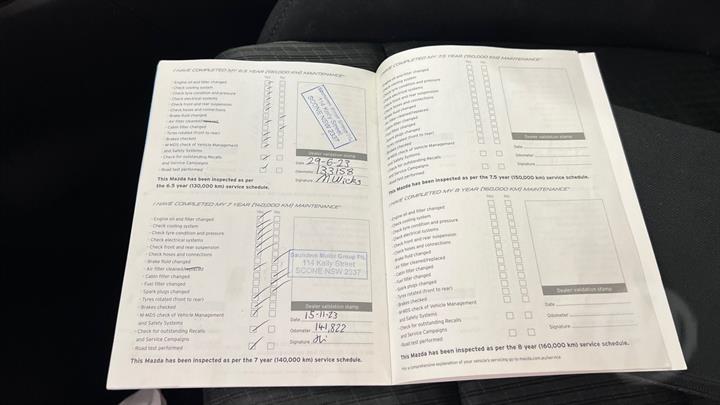 I HAVE COMPLETED MY 6.5 YEAR (130,000 KM) MAINTENANCE*
Yes No
- Engine oil and filter changed
- Check cooling system
- Check tyre condition and pressure
- Check electrical systems
- Check front and rear suspension
- Check hoses and connections
- Brake fluid changed
- Air filter cleaned/replaced
- Cabin filter changed
- Tyres rotated (front to rear)
- Brakes checked
- M-MDS check of Vehicle Management
and Safety Systems
- Check for outstanding Recalls
and Service Campaigns
- Road test performed
Saunders Motor Group P/L
114 Kelly Street
SCONE NSW 2337
Dealer validation stamp
Date 29-6-23
Odometer 133158
Signature M.Wicks
This Mazda has been inspected as per
the 6.5 year (130,000 km) service schedule.
I HAVE COMPLETED MY 7 YEAR (140,000 KM) MAINTENANCE*
Yes No
- Engine oil and filter changed
- Check cooling system
- Check tyre condition and pressure
- Check electrical systems
- Check front and rear suspension
- Check hoses and connections
- Brake fluid changed
- Air filter cleaned/replaced
- Cabin filter changed
- Fuel filter changed
- Spark plugs changed
- Tyres rotated (front to rear)
- Brakes checked
- M-MDS check of Vehicle Management
and Safety Systems
- Check for outstanding Recalls
and Service Campaigns
- Road test performed
Saunders Motor Group P/L
114 Kelly Street
SCONE NSW 2337
Dealer validation stamp
Date 15-11-23
Odometer 141,822
Signature
This Mazda has been inspected as per the 7 year (140,000 km) service schedule.
I HAVE COMPLETED MY 7.5 YEAR (150,000 KM) MAINTENANCE*
Yes No
- Engine oil and filter changed
- Check cooling system
- Check tyre condition and pressure
- Check electrical systems
- Check front and rear suspension
- Check hoses and connections
- Brake fluid changed
- Air filter cleaned/replaced
- Cabin filter changed
- Fuel filter changed
- Spark plugs changed
- Tyres rotated (front to rear)
- Brakes checked
- M-MDS check of Vehicle Management
and Safety Systems
- Check for outstanding Recalls
and Service Campaigns
- Road test performed
Dealer validation stamp
Date
Odometer
Signature
This Mazda has been inspected as per the 7.5 year (150,000 km) service schedule.
I HAVE COMPLETED MY 8 YEAR (160,000 KM) MAINTENANCE*
Yes No
- Engine oil and filter changed
- Check cooling system
- Check tyre condition and pressure
- Check electrical systems
- Check front and rear suspension
- Check hoses and connections
- Brake fluid changed
- Air filter cleaned/replaced
- Cabin filter changed
- Fuel filter changed
- Spark plugs changed
- Tyres rotated (front to rear)
- Brakes checked
- M-MDS check of Vehicle Management
and Safety Systems
- Check for outstanding Recalls
and Service Campaigns
- Road test performed
Dealer validation stamp
Date
Odometer
Signature
This Mazda has been inspected as per the 8 year (160,000 km) service schedule.
For a comprehensive explanation of your vehicle's servicing go to mazda.com.au/service